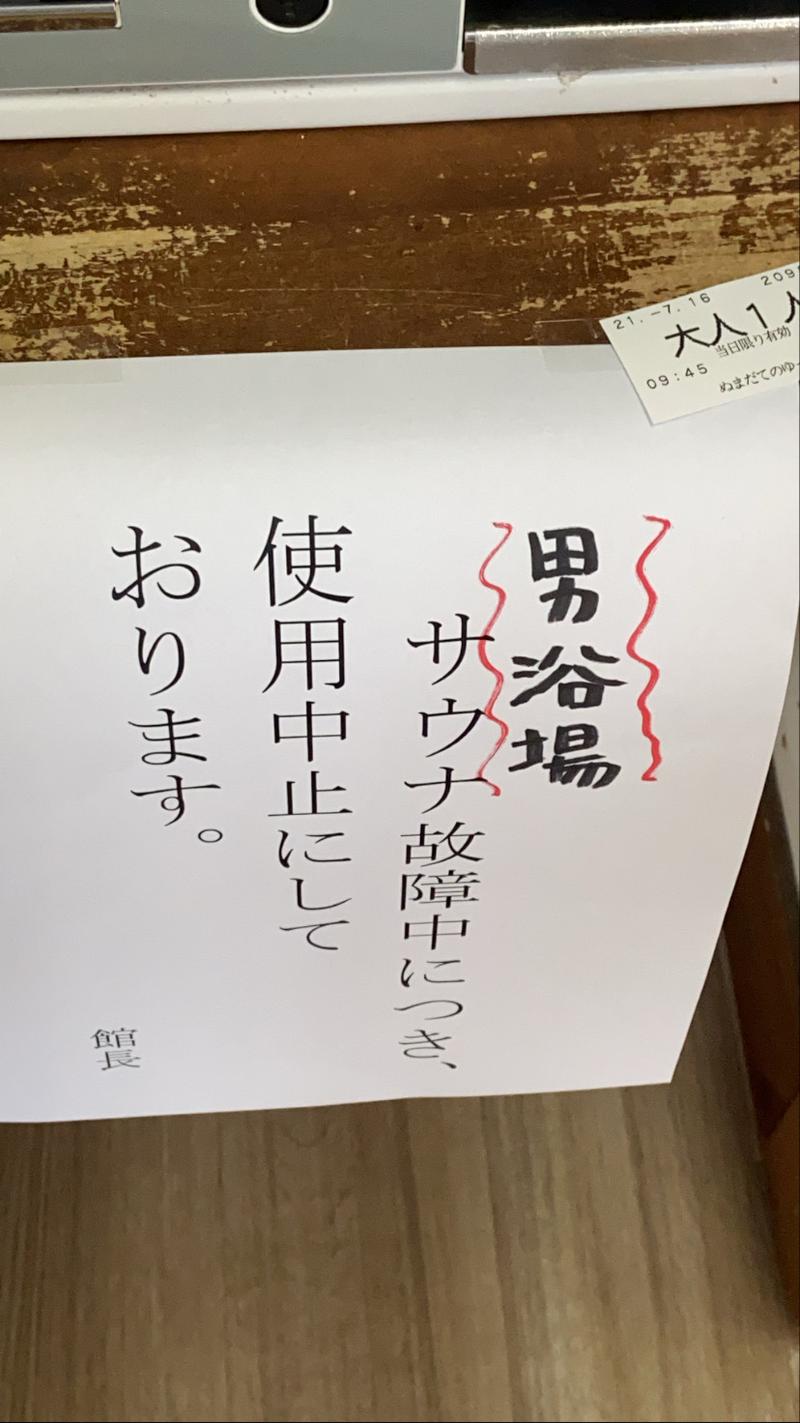 21.-7.16
209
大人1人
当日限り有効
09:45
ぬまだてのゆ
男浴場
サウナ故障中につき、
使用中止にして
おります。
館長